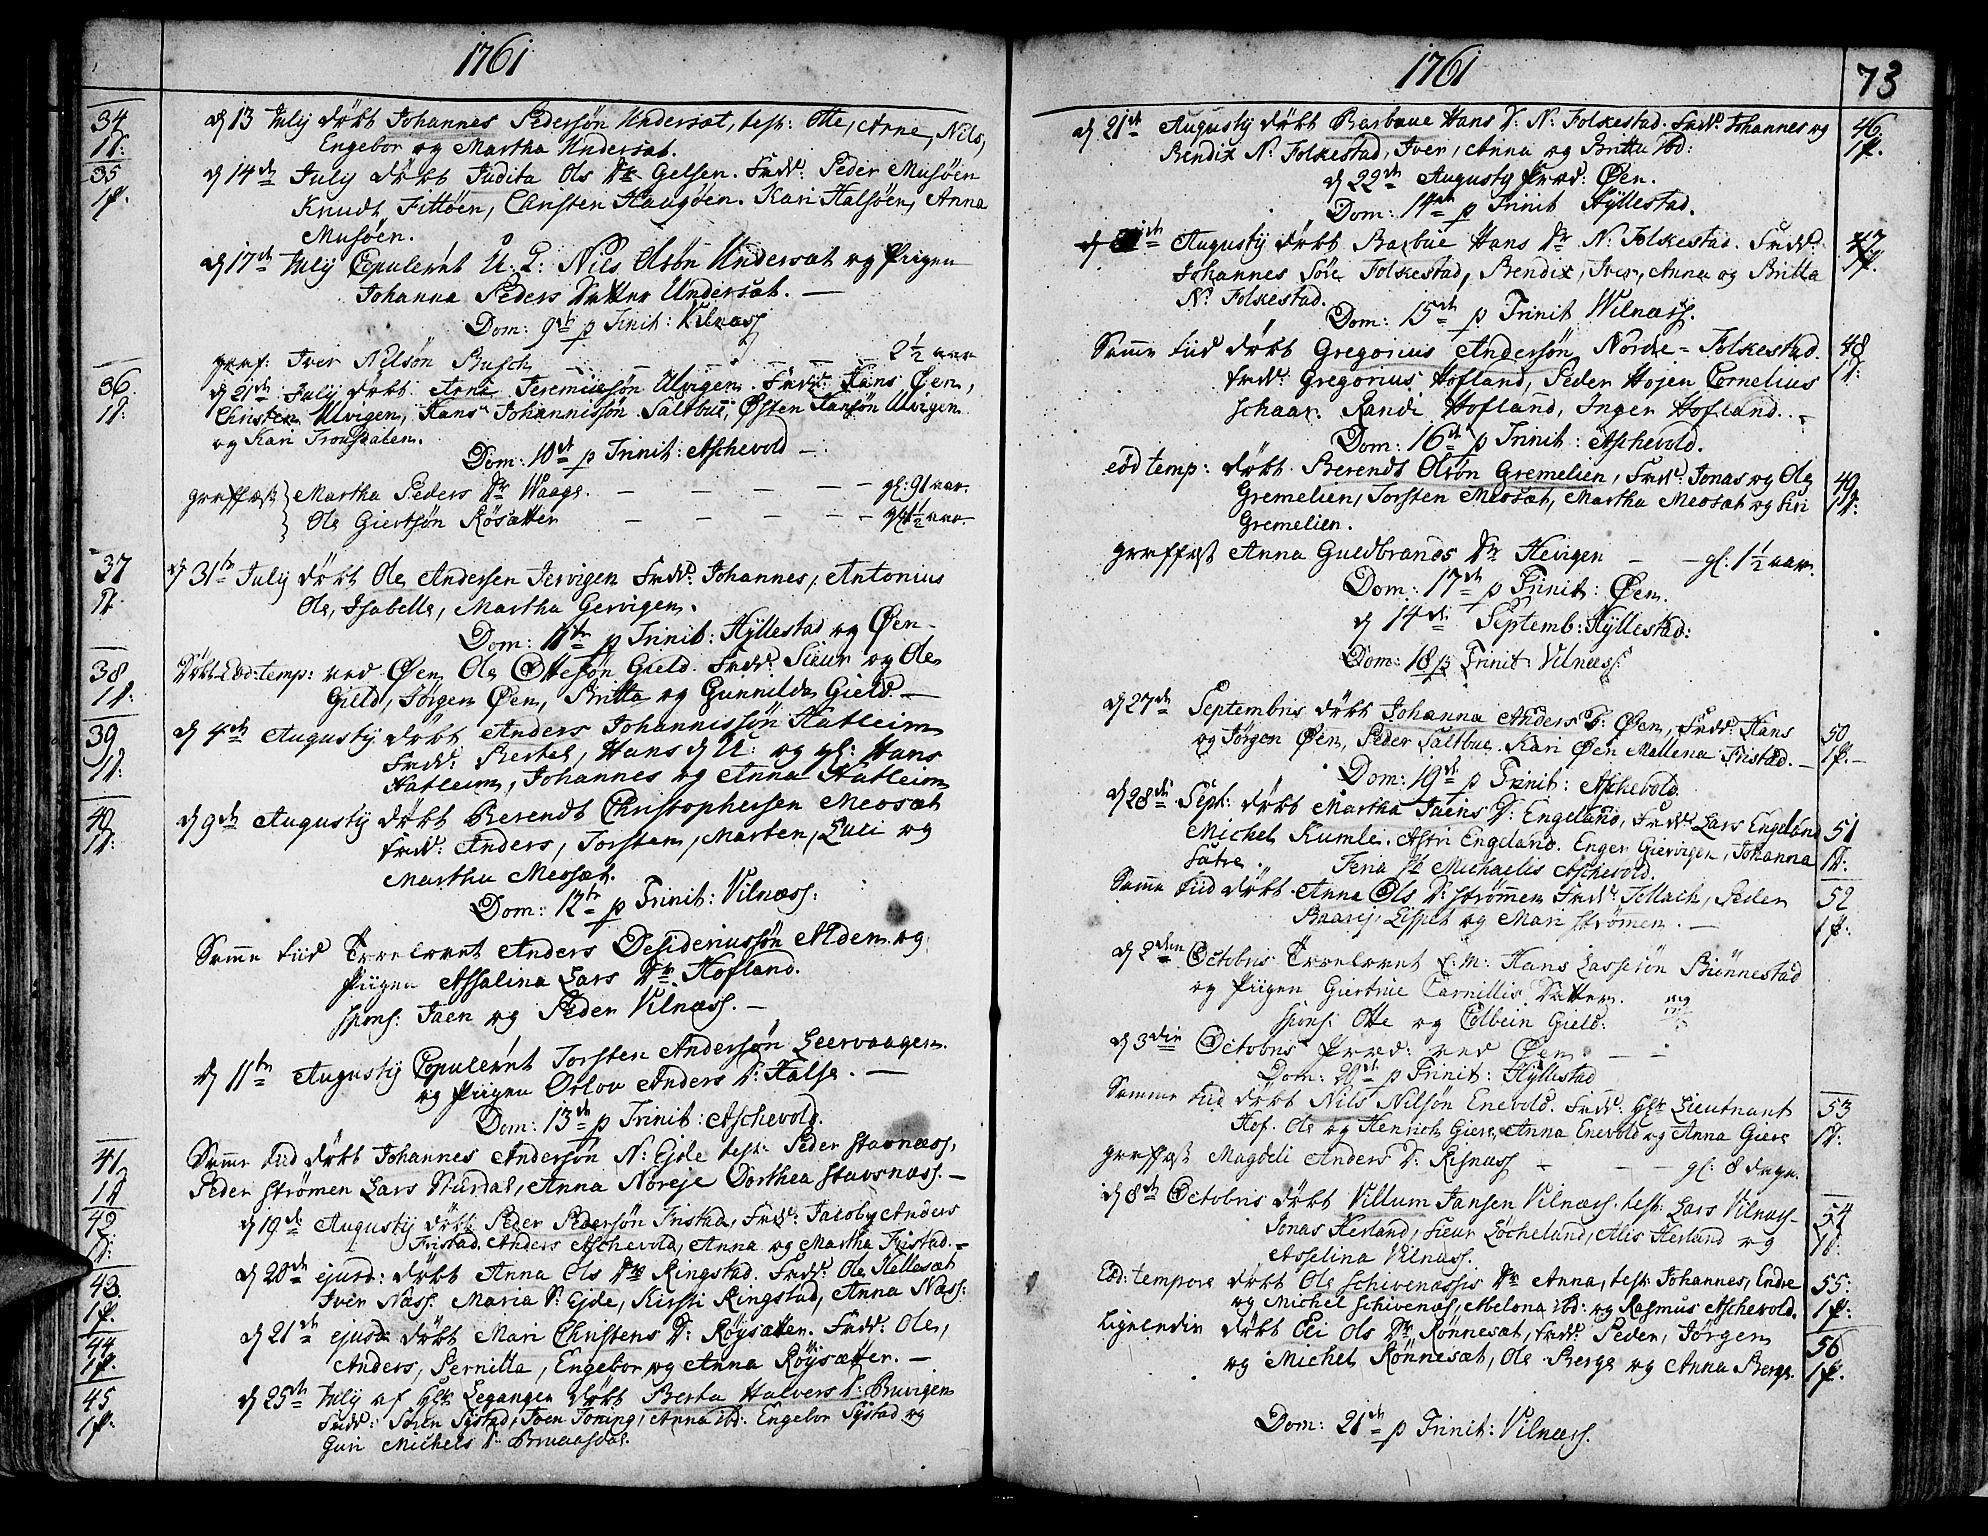 1761
34 d 13 July döbt Johannes Pedersøn Undersæt, test: Otte, Arne, Nils,
1 d: Engebor og Martha Undersæt.
35 d 14de July döbt Judita Ols Dr Gelsen. Fadd: Peder Musöen
1 p. Knudt Fittöen, Christen Haugöen. Kari Halsöen, Anna
Musöen.
d 17de July Copuleret U. K: Nils Olsøn Undersæt og Piigen
Johanna Peders Datter Undersæt. —
Dom: 9de p Trinit: Vilnæss
graf: Iver Nilsøn Busch — — — — 2 1/2 aar
36 d 21de July döbt Arne Jeremiesøn Ulvigen. Fadd: Hans Øen,
1 d: Christen Ulvigen, Hans Johannissøn Saltbue, Østen Hansøn Ulvigen
og Kari Trousdalen.
Dom: 10de p Trinit: Aschevold —
graffæst Martha Peders Dr Waage. — — — — gl: 91 aar.
Ole Giertsøn Røsætter — — — — gl: 1/2 aar.
37 d 31te July döbt Ole Andersen Jervigen Fadd: Johannes, Antonius
1 d. Ole, Isabelle, Martha Gervigen.
Dom: 11te p Trinit: Hyllestad og Øen
38 Döbt Eod: temp: ved Øen Ole Ottesøn Gield. Fadd: Sieur og Ole
1 d: Gield, Jørgen Øen, Britta og Gunnilda Gield. —
39 d 4de Augustij döbt Anders Johannissøn Hatleim
1 d: Fadd: Bertel, Hans d U: og gl: Hans
Hatleim, Johannes og Anna Hatleim
40 d 9de Augustij döbt Berendt Christophersen Meosæt
1 d: Fadd: Anders, Torsten, Marten, Luci og
Martha Meosæt.
Dom: 12te p Trinit: Vilnæss:
Samme tiid Troelovet Anders Desideriussøn Alden og
Piigen Assalina Lars Dr Hofland.
spons: Jaen og Peder Vilnæss. —
d 11te Augustij Copuleret Torsten Andersøn Leervaagen
og Piigen Orlov Anders D: Halse. —
Dom: 13de p Trinit: Aschevold.
41 Samme tiid döbt Johannes Andersøn N: Ejde test: Peder Stavnæss,
1 d Peder Strömen Lars Sturdal, Anna Noreje Dorthea Stavsnæss. —
42 d 19de Augustij döbt Peder Pedersøn Tristad, Fadd: Jacob, Anders
1 d: Tristad, Anders Aschevold, Anna og Martha Tristad. —
43 d 20de ejusd: döbt Anna Ols Dr Ringstad. Fadd: Ole Hellesæt
1 p. Iver Næss: Maria D: Ejde, Kirsti Ringstad, Anna Næss:
44 d 21de ejusd: döbt Mari Christens D: Röysætter. Fadd: Ole,
1 p. Anders, Pernilla, Engebor og Anna Röysætter. —
45 d 25de July af Leganger döbt Berta Halvers D: Buvigen
1 p. Fadd: Søren Systad, Joen Joning, Anna ibd: Engebor Systad og
Guri Michels D: Bruaasdal.
1761
73
d 21de Augustij döbt Barbue Hans D: N: Folkestad. Fadd: Johannes og 46
Bendix N: Folkestad, Iver, Anna og Britta ibd: 1 p.
d 22de Augustij Præd: Øen.
Dom: 14de p Trinit Hyllestad.
Augustij döbt Barbue Hans Dr N: Folkestad. Fadd: 47
Johannes Søre Folkestad, Bendix, Iver, Anna og Britta 1 p.
N: Folkestad.
Dom: 15de p Trinit Wilnæss.
Samme tiid döbt Gregorius Andersøn Nordre-Folkestad. 48
Fadd: Gregorius Hofland, Peder Hojen Cornelius 1 d:
Schaar. Randi Hofland, Inger Hofland. —
Dom: 16de p Trinit: Aschevold.
eod temp: döbt Berendt Olsøn Gremelien, Fadd: Jonas og Ole 49
Gremelien, Torsten Meosæt, Martha Meosæt og Siri 1 d:
Gremelien.
graffæst Anna Guldbrands Dr Hevigen — — gl: 1 1/2 aar.
Dom: 17de p Trinit: Øen.
d 14de Septemb: Hyllestad:
Dom: 18 p Trinit: Vilnæss:
d 27de Septembris döbt Johanna Anders D: Øen, Fadd: Hans 50
og Jørgen Øen, Peder Saltbue. Kari Øen Mallena Tristad. — 1 p. —
Dom: 19de p Trinit: Aschevold.
d 28de Sept: döbt Martha Jaens D: Engeland, Fadd: Lars Engeland 51
Michel Kumle. Astri Engeland. Enger Giervigen, Johanna 1 d:
Sætre. Feria St Michaelis Aschevold.
Samme tiid döbt Anna Ols D: Strömmen Fadd: Tollach, Peder 52
Lispet og Mari Strömen. — 1 p.
d 2den Octobris Troelovet E. M: Hans Lassesøn Biønnestad
og Piigen Giertrue Carnillis Datter.
spons: Otte og Colbein Gield:
d 3die Octobris Præd: ved Øen. — —
Dom: 20de p Trinit: Hyllestad
Samme tiid döbt Nils Nilsøn Enevold. Fadd: Lieutnant 53
Hof. Ole og Henrich Giere, Anna Enevold og Anna Giere 1 d:
graffæst Magdeli Anders D: Risnæss — — — gl: 8 dage.
d 8de Octobris döbt Villum Jansen Vilnæss. test: Lars Vilnæss 54
Jonas Herland, Sieur Løchelund, Alis Herland og 1 d:
Asselina Vilnæss.
Eod: tempore döbt Ole Schivenæsses Dr Anna, test: Johannes, Endre 55:
og Michel Schivenæs, Abelona ibd: og Rasmus Aschevold. 1 p.
Ligeledis döbt Eli Ols Dr Rønnesæt, Fadd: Peder, Jørgen 56
og Michel Rønnesæt, Ole Berge og Anna Berge. 1 p.
Dom: 21de p Trinit: Vilnæss.